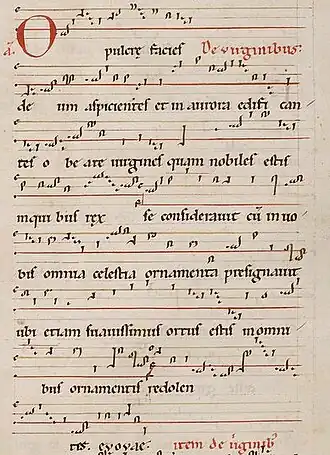 O pulcrę facies De uirginibus:
de um aspicientes et in aurora edifi can
tes o be ate uirgines quam nobiles estis
in qui bus rex se considerauit cū in uo
bis omnia celestia ornamenta presignauit
ubi etiam suauissimus ortus estis in omni
bus ornamentis redolen
tis. euouae. item de uirginib;